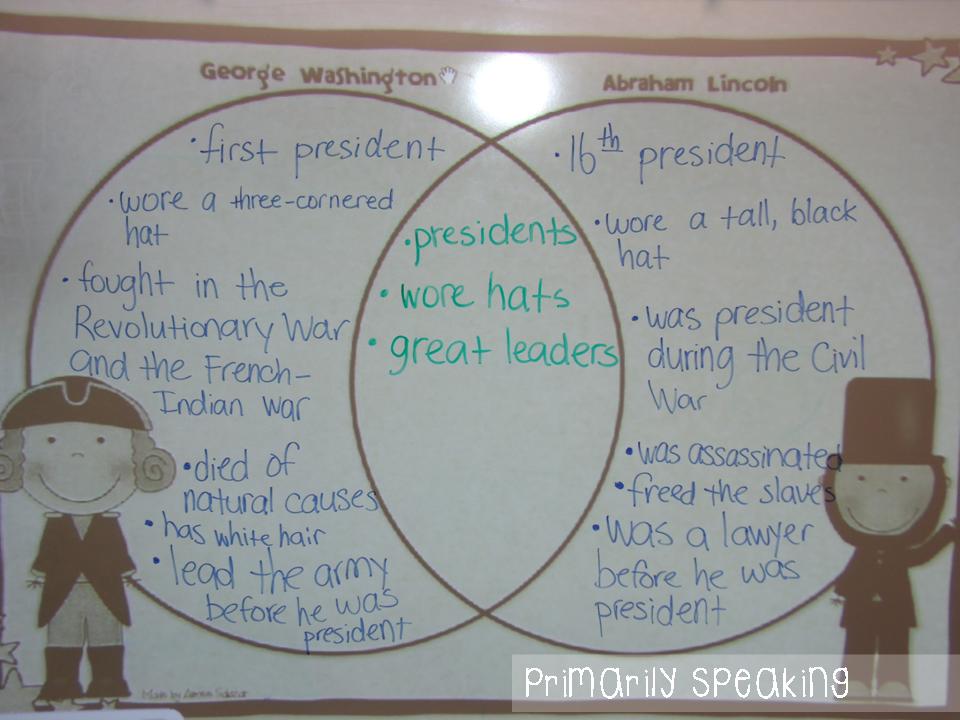 George Washington
Abraham Lincoln
•first president
•wore a three-cornered
hat
•fought in the
Revolutionary War
and the French-
Indian war
•died of
natural causes
•has white hair
•lead the army
before he was
president
•presidents
•wore hats
•great leaders
•16th president
•wore a tall, black
hat
•was president
during the Civil
War
•was assassinated
•freed the slaves
•was a lawyer
before he was
president
Made by
Primarily Speaking